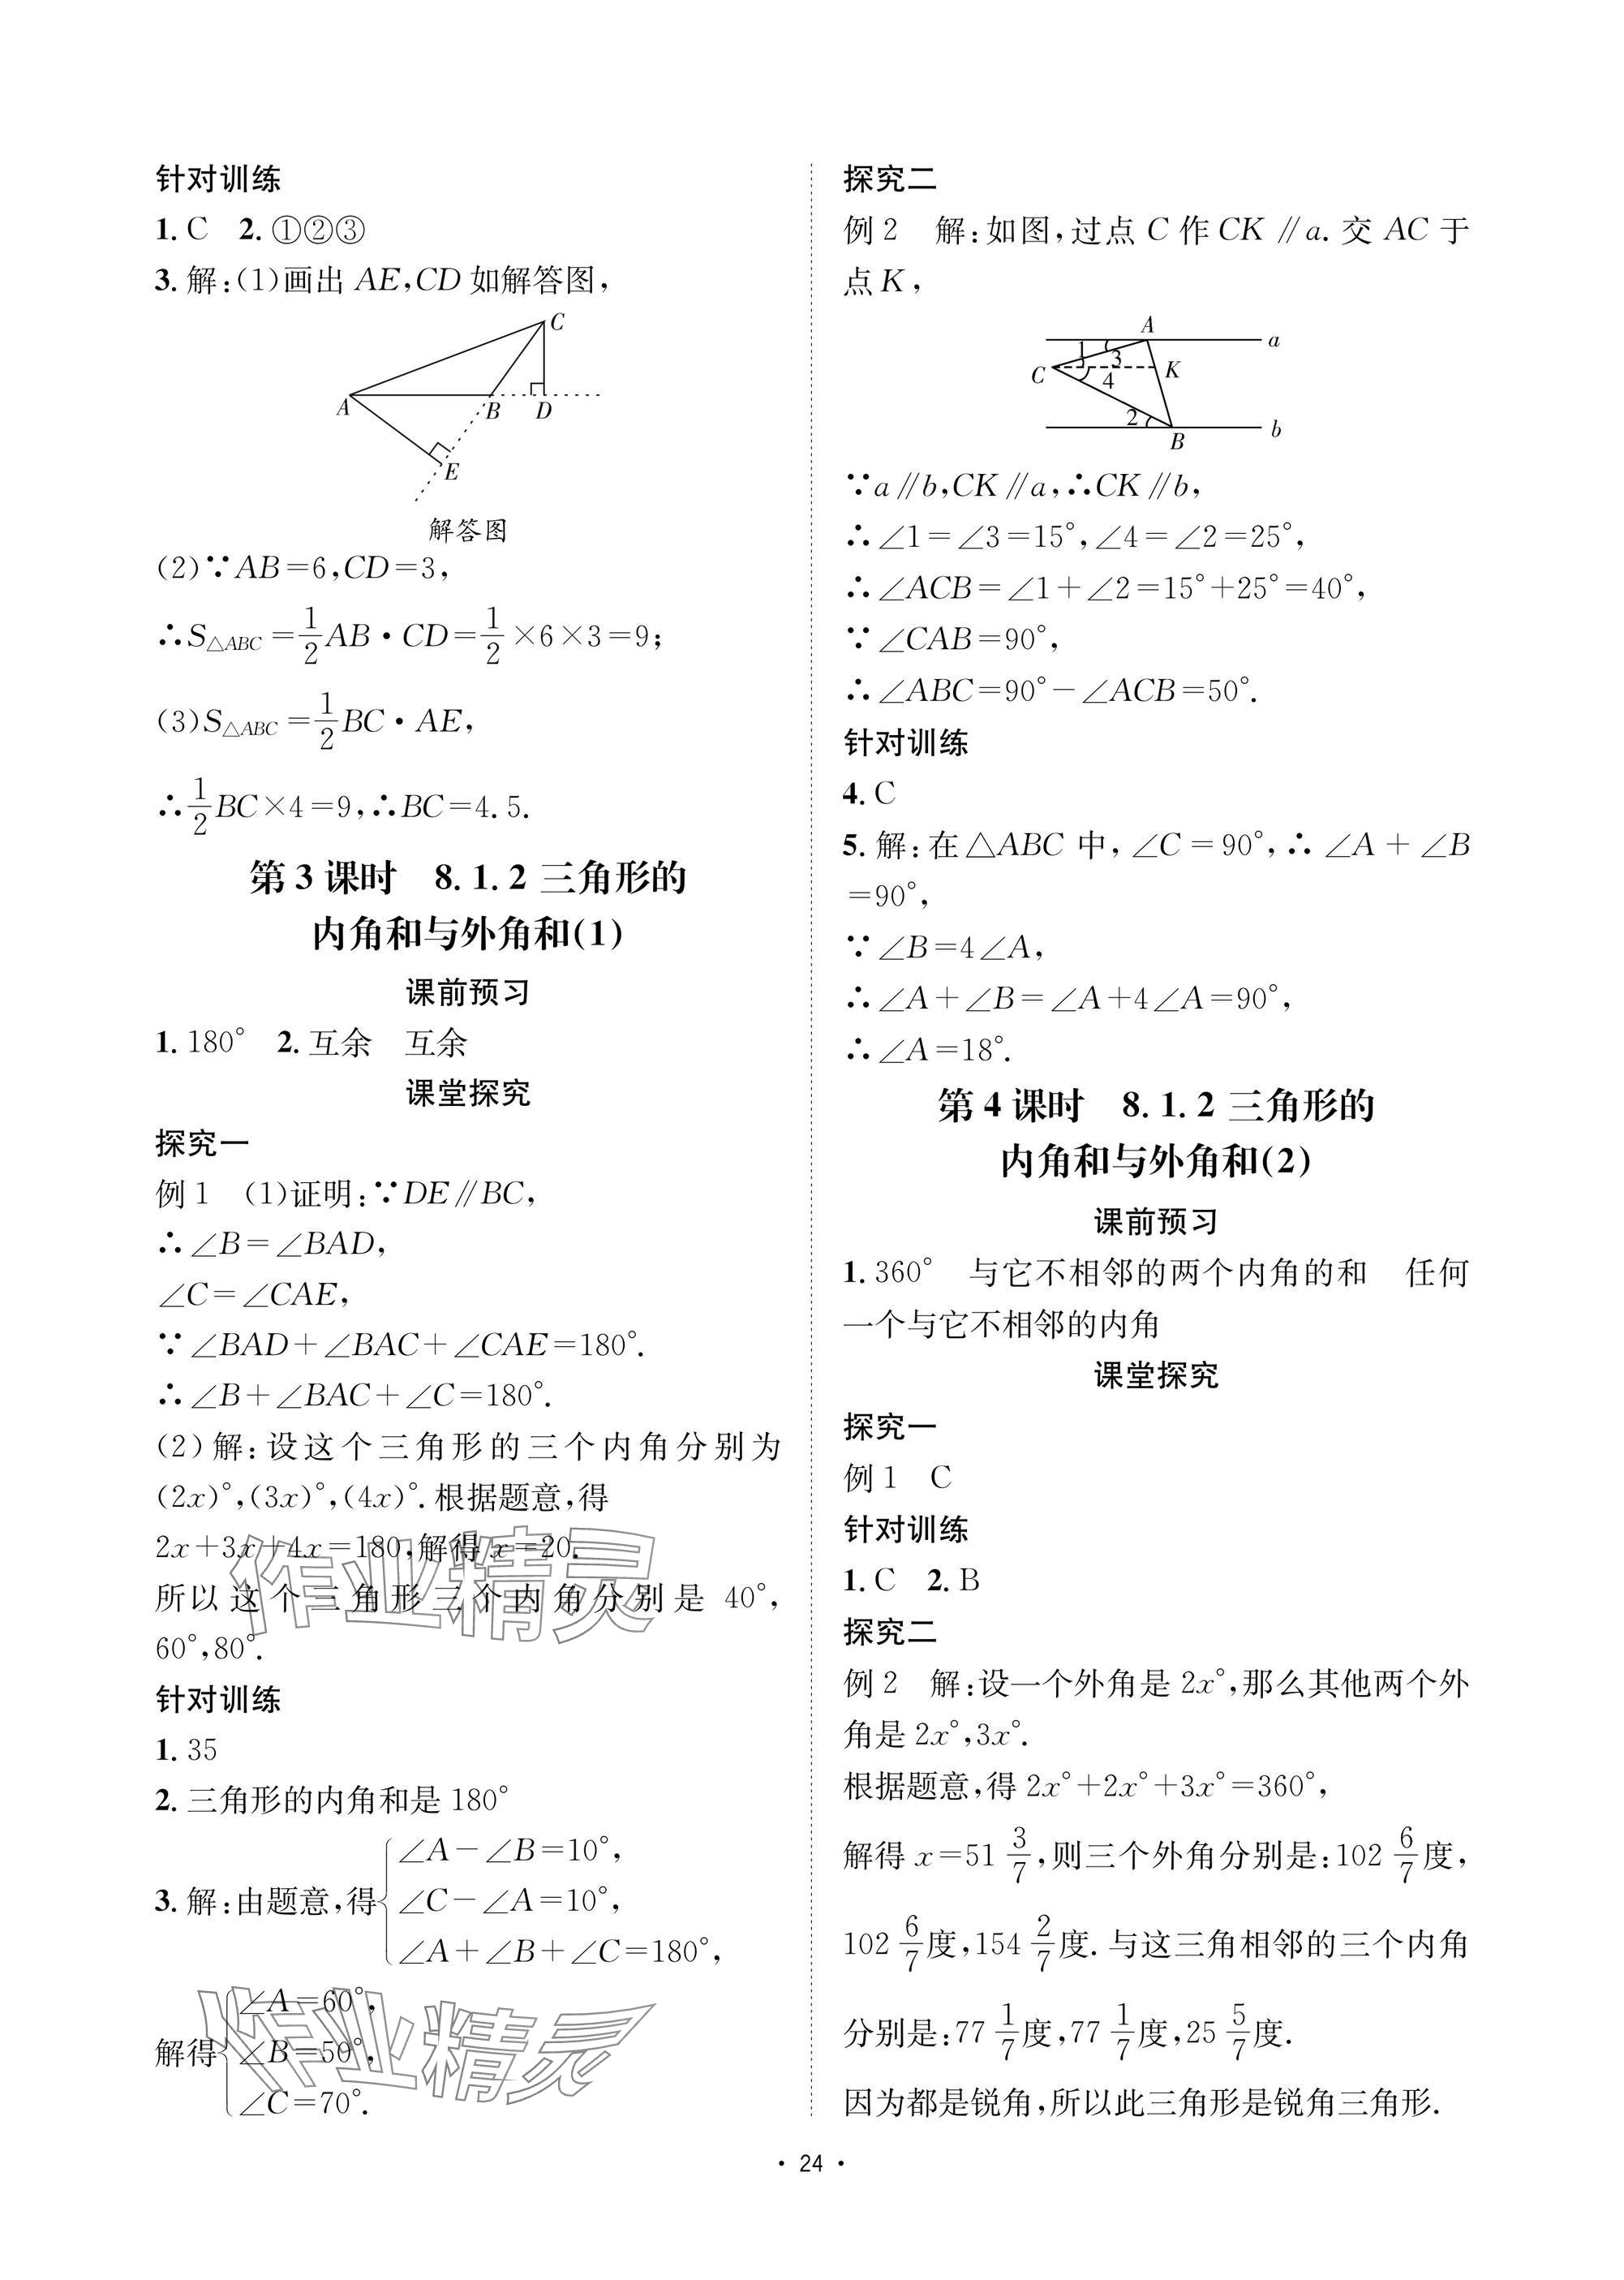 针对训练
1. C  2. ①②③
3. 解:(1)画出 AE,CD 如解答图,
C
A
B
D
E
解答图
(2)∵AB=6,CD=3,
∴S△ABC=1/2AB·CD=1/2×6×3=9;
(3)S△ABC=1/2BC·AE,
∴1/2BC×4=9,∴BC=4.5.
第 3 课时  8.1.2 三角形的
内角和与外角和(1)
课前预习
1. 180°  2. 互余  互余
课堂探究
探究一
例 1  (1)证明:∵DE∥BC,
∴∠B=∠BAD,
∠C=∠CAE,
∵∠BAD+∠BAC+∠CAE=180°.
∴∠B+∠BAC+∠C=180°.
(2)解:设这个三角形的三个内角分别为
(2x)°,(3x)°,(4x)°. 根据题意,得
2x+3x+4x=180,解得 x=20.
所以这个三角形三个内角分别是 40°,
60°,80°.
针对训练
1. 35
2. 三角形的内角和是 180°
3. 解:由题意,得{∠A-∠B=10°,
∠C-∠A=10°,
∠A+∠B+∠C=180°,
解得{∠A=60°,
∠B=50°,
∠C=70°.
作业精灵
作业精灵
探究二
例 2  解:如图,过点 C 作 CK∥a. 交 AC 于
点 K,
A
a
1
3
C
K
4
2
B
b
∵a∥b,CK∥a,∴CK∥b,
∴∠1=∠3=15°,∠4=∠2=25°,
∴∠ACB=∠1+∠2=15°+25°=40°,
∵∠CAB=90°,
∴∠ABC=90°-∠ACB=50°.
针对训练
4. C
5. 解:在△ABC 中,∠C=90°,∴∠A+∠B
=90°,
∵∠B=4∠A,
∴∠A+∠B=∠A+4∠A=90°,
∴∠A=18°.
第 4 课时  8.1.2 三角形的
内角和与外角和(2)
课前预习
1. 360°  与它不相邻的两个内角的和  任何
一个与它不相邻的内角
课堂探究
探究一
例 1  C
针对训练
1. C  2. B
探究二
例 2  解:设一个外角是 2x°,那么其他两个外
角是 2x°,3x°.
根据题意,得 2x°+2x°+3x°=360°,
解得 x=51 3/7,则三个外角分别是:102 6/7度,
102 6/7度,154 2/7度. 与这三角相邻的三个内角
分别是:77 1/7度,77 1/7度,25 5/7度.
因为都是锐角,所以此三角形是锐角三角形.
· 24 ·